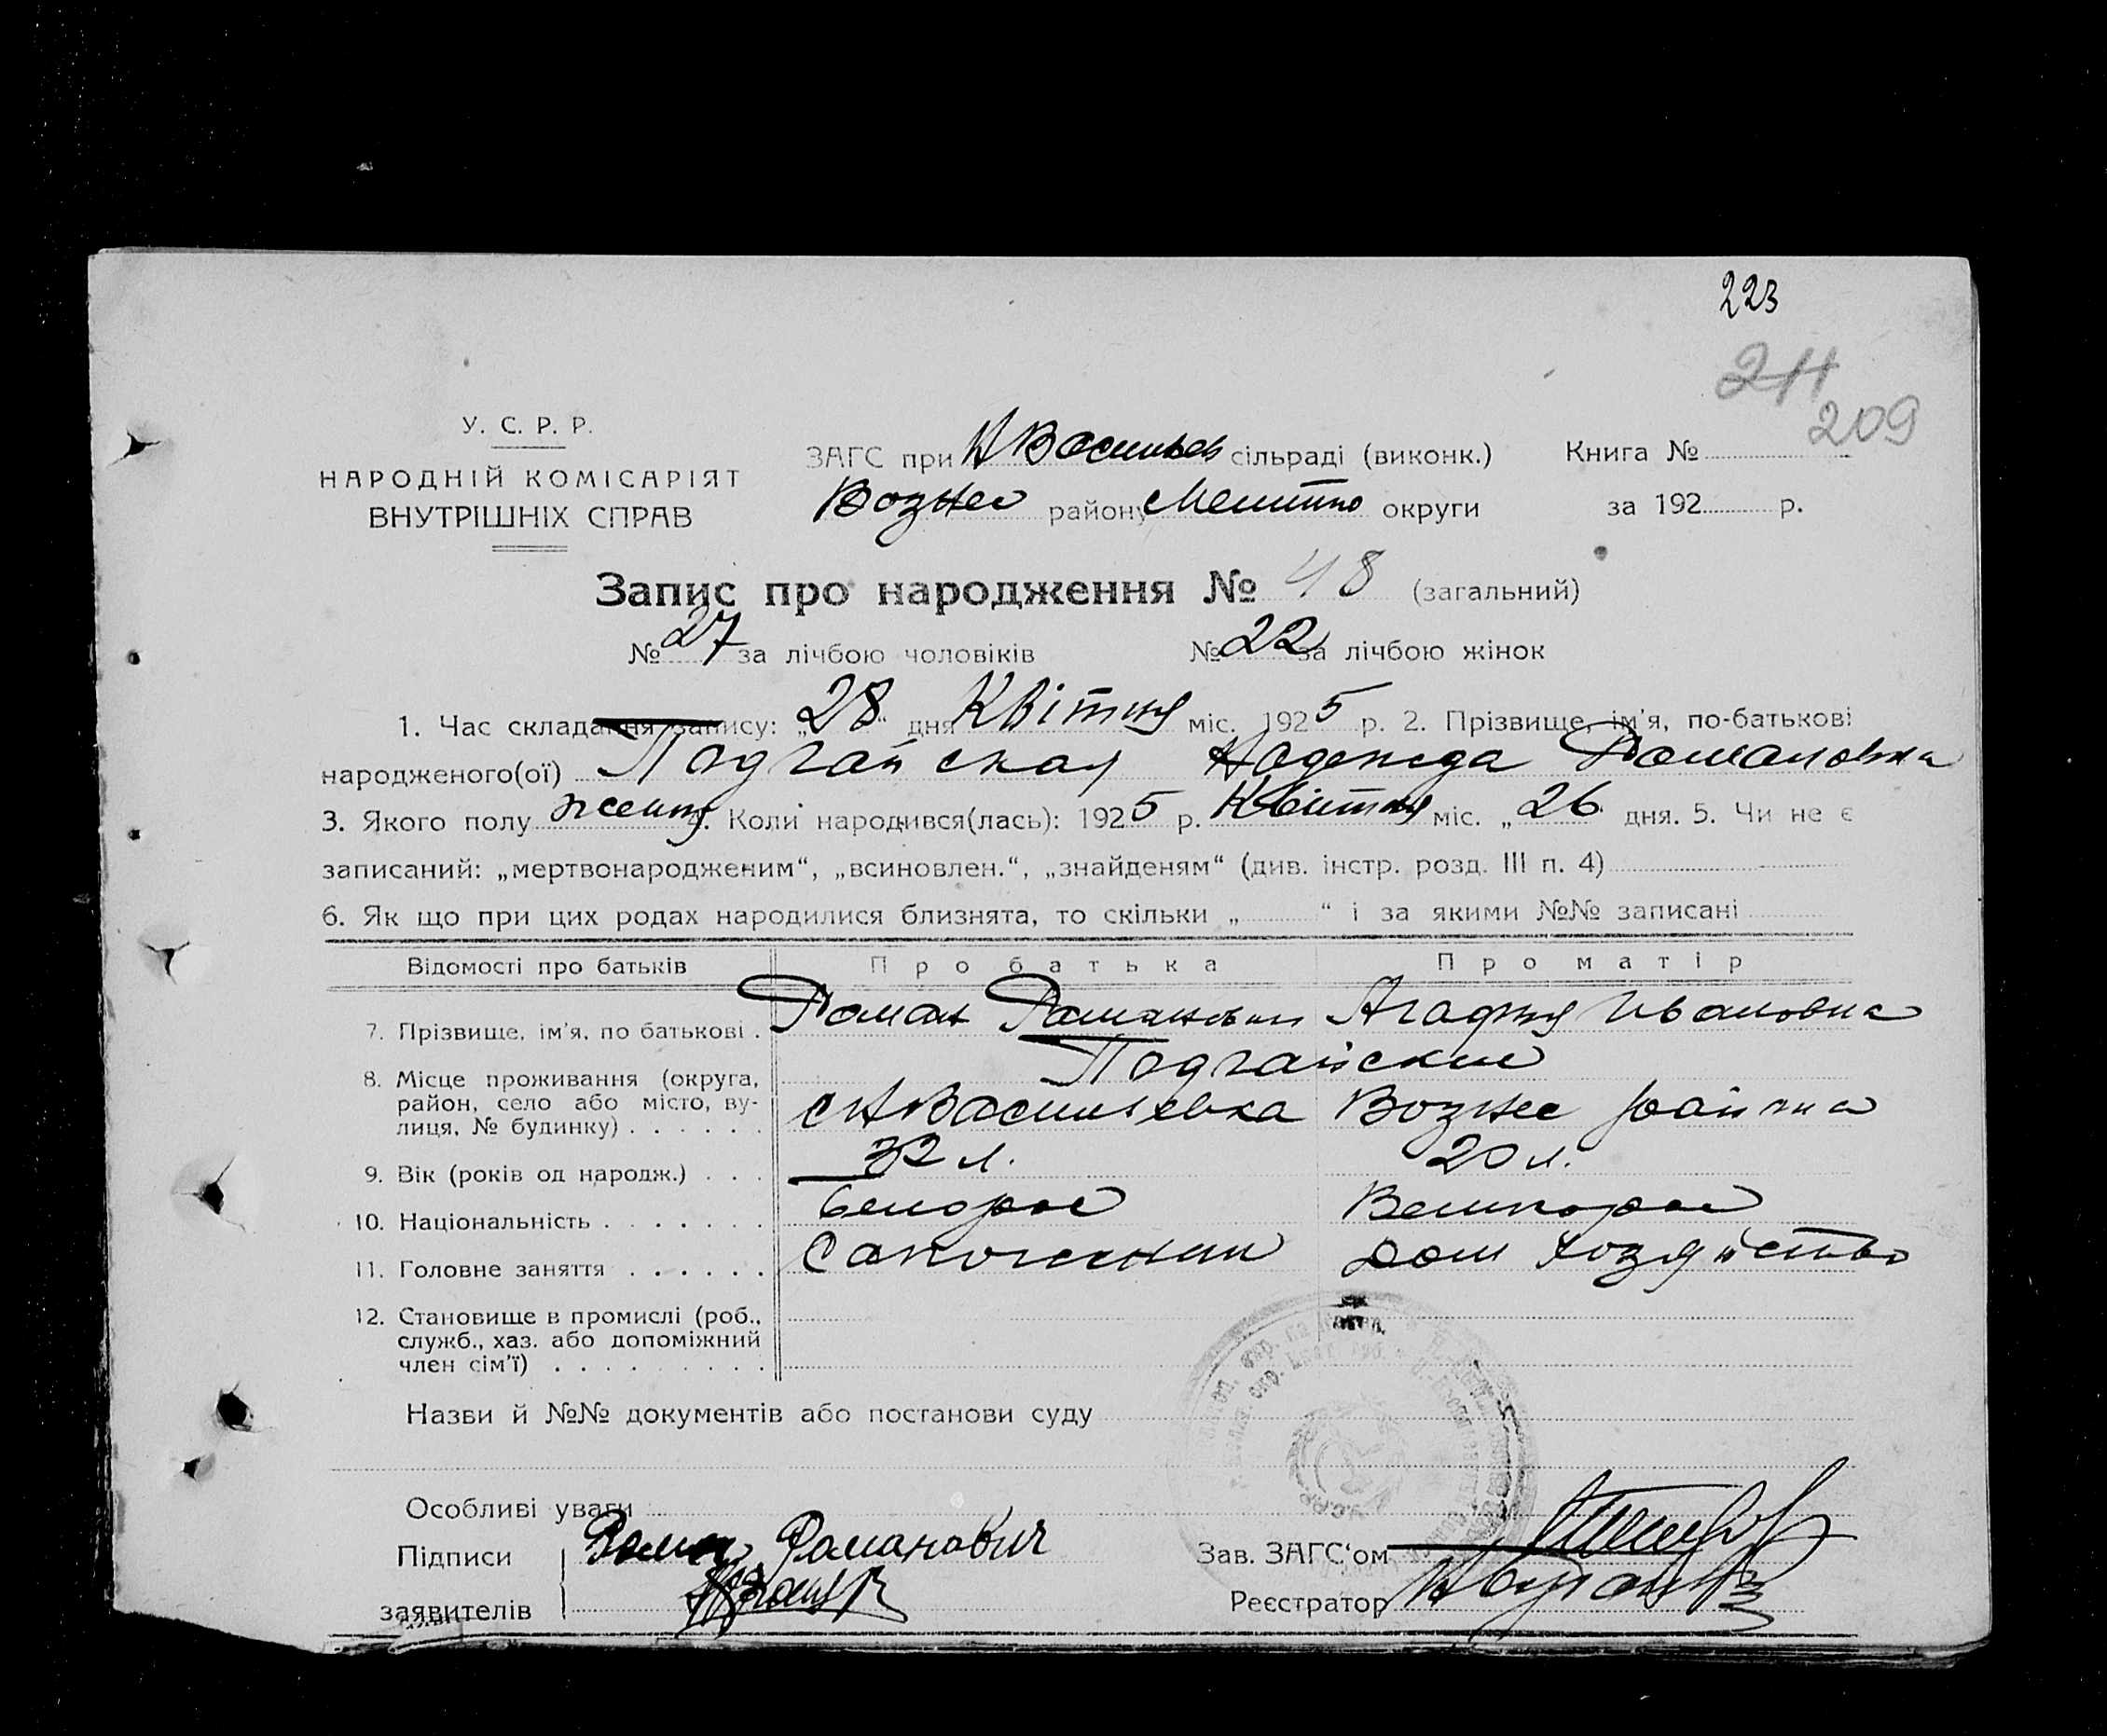 223
211
209
У. С. Р. Р.
НАРОДНІЙ КОМІСАРІЯТ
ВНУТРІШНІХ СПРАВ
ЗАГС при НВасильев сільраді (виконк.) Книга №
Вознес району Мелитпо округи за 192 р.
Запис про народження № 48 (загальний)
№ 27 за лічбою чоловіків № 22 за лічбою жінок
1. Час складання запису: „28“ дня Квітня міс. 1925 р. 2. Прізвище, ім’я, по-батькові
народженого(ої) Подгайская Надежда Романовна
3. Якого полу женщ 4. Коли народився(лась): 1925 р. Квітня міс. „26 дня. 5. Чи не є
записаний: „мертвонародженим“, „всиновлен.“, „знайденям“ (див. інстр. розд. III п. 4)
6. Як що при цих родах народилися близнята, то скільки „ “ і за якими №№ записані
Відомості про батьків Про батька Про матір
7. Прізвище, ім’я, по батькові . Роман Романович Агафия Ивановна
Подгайские
8. Місце проживання (округа,
район, село або місто, ву-
лиця, № будинку) . . . . . . с НВасильевка Вознес района
9. Вік (років од народж.) . . . 32 л. 20 л.
10. Національність . . . . . . . белорос Великорос
11. Головне заняття . . . . . . Сапожник Дом хозяйство
12. Становище в промислі (роб.,
служб., хаз. або допоміжний
член сім’ї) . . . . . . . . .
Назви й №№ документів або постанови суду
Особливі уваги
Підписи Роман Романович
заявителів
Зав. ЗАГС‘ом
Реєстратор